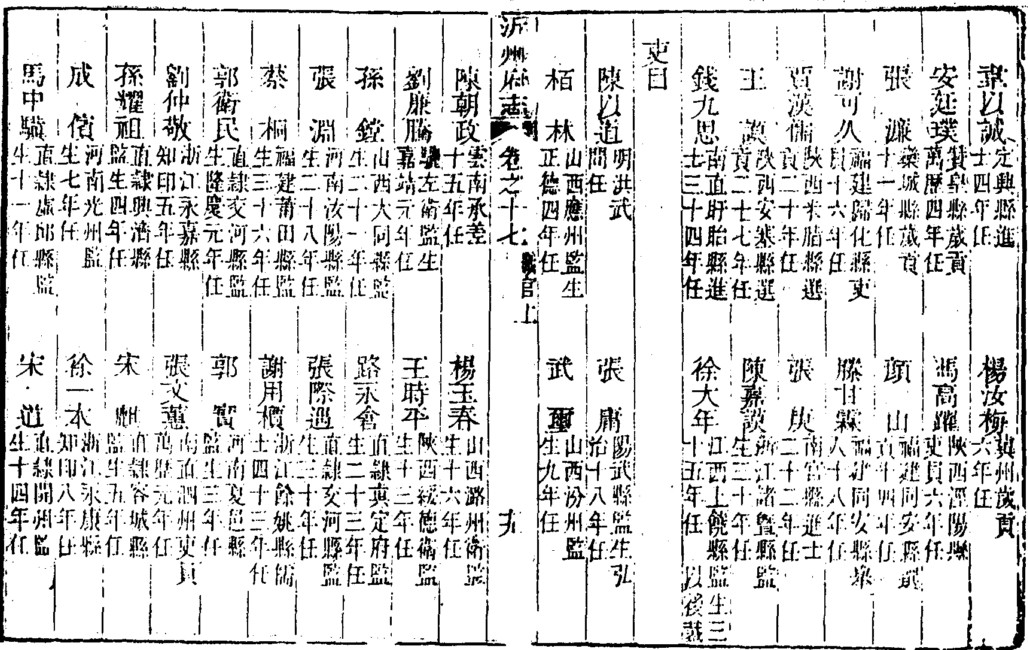 韋以誠 定興縣進士四年任 楊汝梅 冀州歲貢六年任
安廷璞 贊皇縣歲貢萬歷四年任 馮高躍 陝西涇陽縣吏員六年任
張濂 欒城縣歲貢十一年任 山 福建同安縣選貢十四年任
謝可久 福建歸化縣吏員十六年任 滕甘霖 福建同安縣舉人十八年任
賈漢儒 陝西米脂縣選貢二十年任 張庚 南宮縣進士二十二年任
王謨 陝西安塞縣選貢二十七年任 陳嘉謨 浙江諸暨縣監生三十年任
錢九思 南直盱眙縣進士三十四年任 徐大年 江西上饒縣監生三十五年任以後裁
吏目
陳以道 明洪武間任 張庸 陽武縣監生弘治十八年任
栢林 山西應州監生正德四年任 武璽 山西汾州監生九年任
沂州府志 卷之十七 職官上 十九
陳朝政 雲南承差十五年任 楊玉春 山西潞州衛監生十六年任
劉廉 左衛監生嘉靖元年任 王時平 陝西綏德衛監生十三年任
孫鏜 山西大同監生二十一年任 路永會 直隷真定府監生二十三年任
張淵 河南汝陽縣監生二十八年任 張際遇 直隷交河縣監生三十年任
蔡桐 福建莆田縣監生三十六年任 謝用櫝 浙江餘姚縣儒士四十三年任
郭衛民 直隷交河縣監生隆慶元年任 郭實 河南夏邑縣監生三年任
劉仲敬 浙江永嘉縣知印五年任 張文蕙 南直泗州吏員萬曆元年任
孫耀祖 直隷興濟縣監生四年任 宋 直隷容城縣監生五年任
成僖 河南光州監生七年任 徐一本 浙江永康縣知印八年任
馬中驥 直隷虛邱縣監生十一年任 宋道 直隷開州監生十四年任